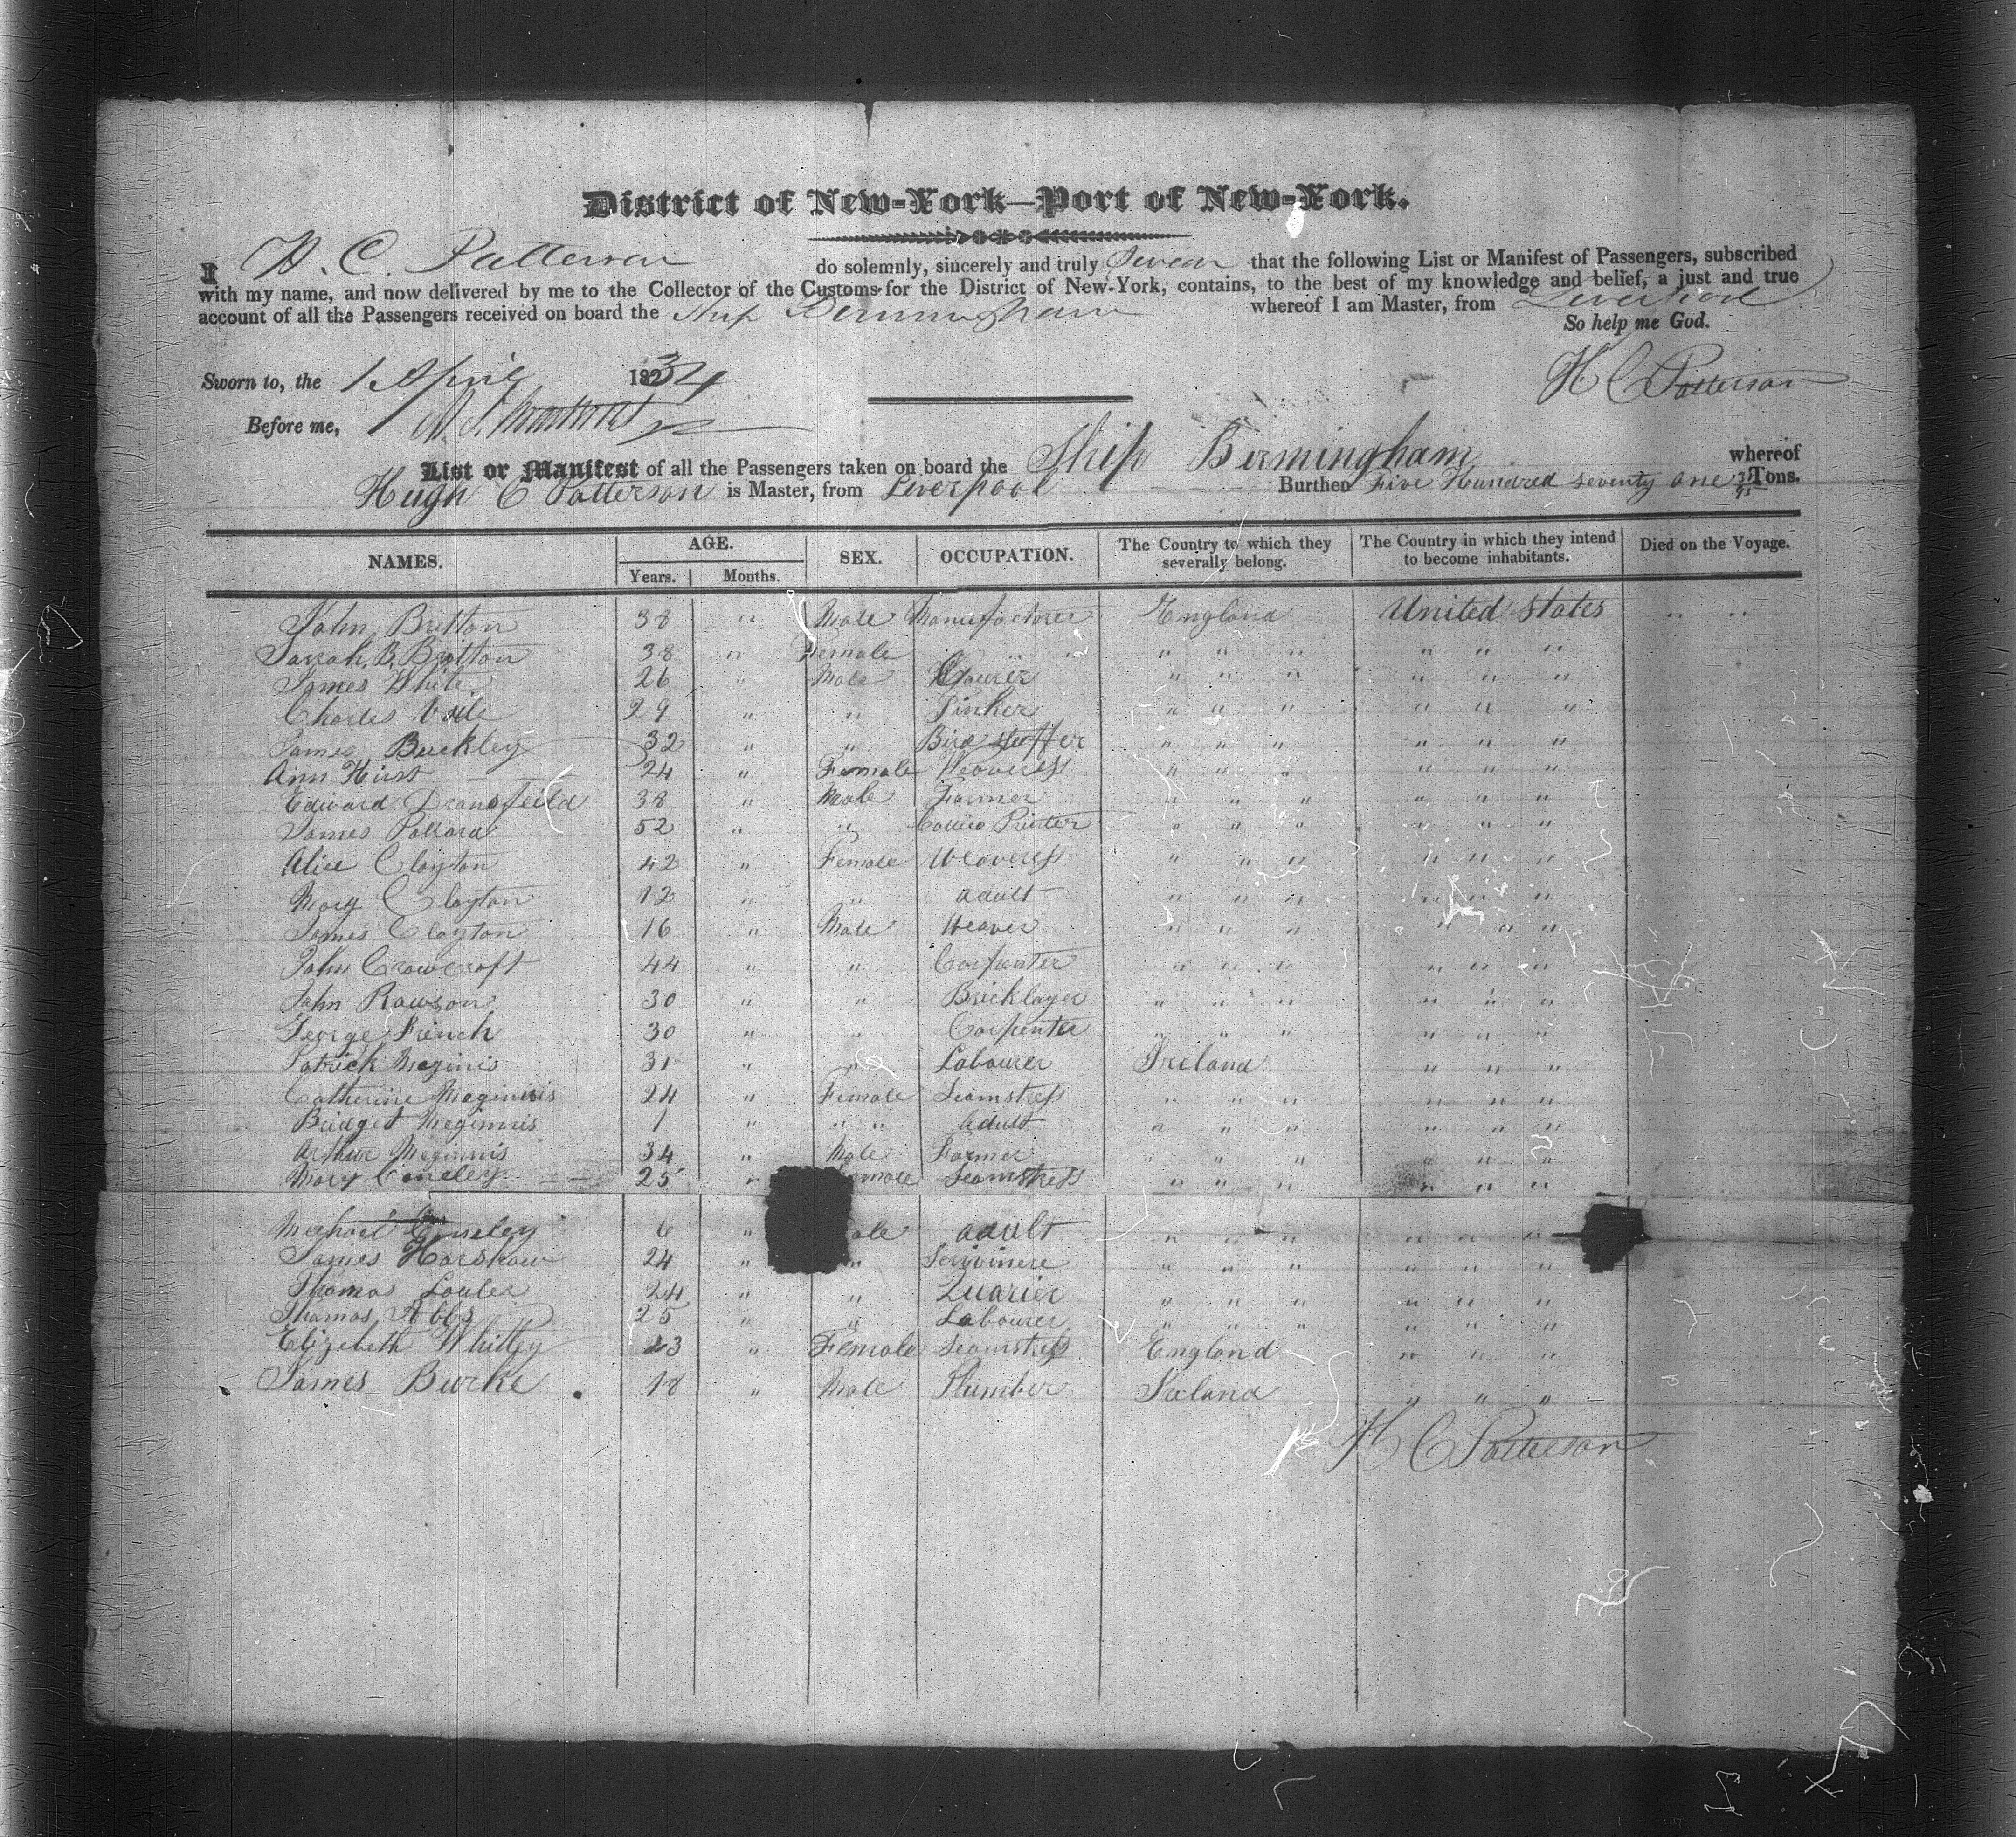 District of New-York—Port of New-York.
I H. C. Patterson do solemnly, sincerely and truly Swear that the following List or Manifest of Passengers, subscribed
with my name, and now delivered by me to the Collector of the Customs for the District of New-York, contains, to the best of my knowledge and belief, a just and true
account of all the Passengers received on board the Ship Birmingham whereof I am Master, from Liverpool
So help me God.
Sworn to, the 1 April 1834 H C Patterson
Before me,
List or Manifest of all the Passengers taken on board the Ship Birmingham whereof
Hugh C Patterson is Master, from Liverpool Burthen Five Hundred seventy one Tons.
NAMES. AGE. Years. Months. SEX. OCCUPATION. The Country to which they severally belong. The Country in which they intend to become inhabitants. Died on the Voyage.
John Britton 38 " Male Manufactorer England United States " "
Sarah B. Britton 38 " Female " " " " " " " "
James White 26 " Male " " " " " "
Charles Vale 29 " " Sinker " " " " " "
James Buckley 32 " " Bird stuffer " " " " " "
Ann Hirst 24 " Female Weaveress " " " " " "
Edward Dransfeild 38 " Male Farmer " " " " " "
James Pollard 52 " " Callico Printer " " " " " "
Alice Clayton 42 " Female Weaveress " " " " " "
Mary Clayton 12 " " adult " " " " " "
James Clayton 16 " Male Weaver " " " " " "
John Crowcroft 44 " " Carpenter " " " " " "
John Rawson 30 " " Bricklayer " " " " " "
George French 30 " " Carpenter " " " " " "
Patrick Meginis 31 " " Labourer Ireland " " "
Catherine Meginnis 24 " Female Seamstress " " " " " "
Bridget Meginnis 1 " " " adult " " " " " "
Arthur Meginnis 34 " Male Farmer " " " " " "
Mary Coneley 25 " Female Seamstress " " " " " "
Michael Conseley 6 " Male adult " " " " " "
James Horshaw 24 " " Scrivinere " " " " " "
Thomas Lawler 24 " " Quarier " " " " " "
Thomas Abbs 25 " " Labourer " " " " " "
Elizebeth Whitley 23 " Female Seamstress England " " "
James Burke 18 " Male Plumber Ireland " " "
H C Patterson